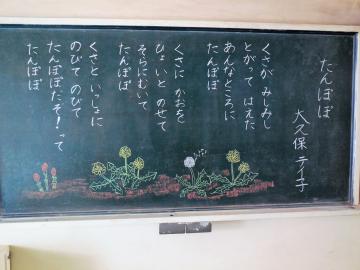 たんぽぽ
大久保 テイ子
くさが みしみし
とがって はえた
あんなところに
たんぽぽ
くさに かおを
ひょいと のせて
そらにむいて
たんぽぽ
くさと いっしょに
のびて のびて
たんぽぽだぞ！って
たんぽぽ